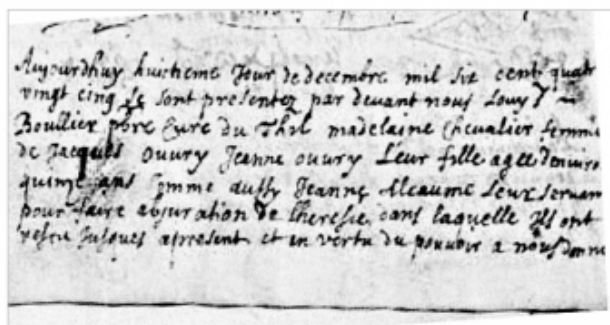 Aujourdhuy huictieme Jour de decembre mil six cent quatr
vingt cinq se sont presentez par devant nous Louys
Boullier pbre Curé du Thil madelaine Chevalier femme
de Jacques ouvry Jeanne ouvry Leur fille agee denviro
quinze ans Comme aussy Jeanne Aleaume Leur servan
pour faire abjuration de lheresie dans laquelle Ils ont
vescu Jusques apresent et en vertu du pouvoir a nous donne